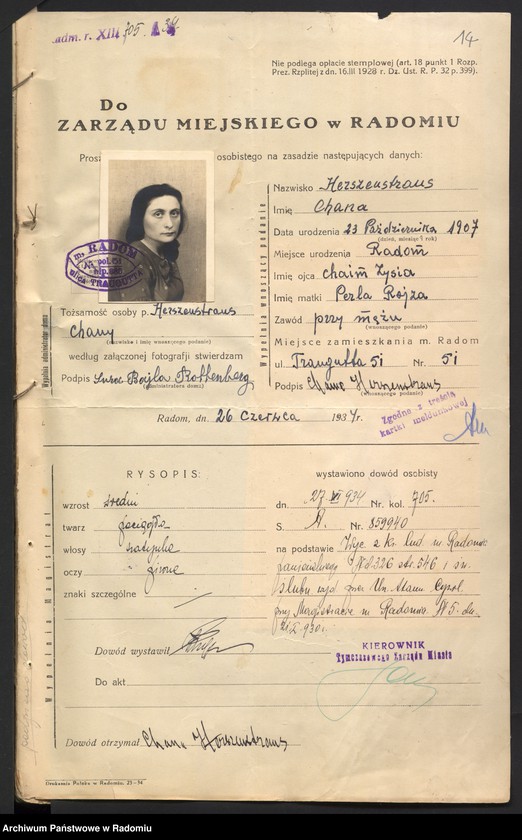 adm. r. XIII 705. A 34
14
Nie podlega opłacie stemplowej (art. 18 punkt 1 Rozp.
Prez. Rzplitej z dn. 16.III 1928 r. Dz. Ust. R. P. 32 p. 399).
Do
ZARZĄDU MIEJSKIEGO w RADOMIU
Prosz osobistego na zasadzie następujących danych:
Nazwisko Herszenstraus
Imię Chana
Data urodzenia 23 Października 1907
(dzień, miesiąc i rok)
Miejsce urodzenia Radom
Imię ojca Chaim Zysia
Imię matki Perla Rojza
Zawód przy mężu
(wnoszącego podanie)
Miejsce zamieszkania m. Radom
ul. Traugutta 51 Nr. 51
Podpis Chana Herszenstraus
(wnoszącego podanie)
Wypełnia wnoszący podanie
m. RADOM
pol. 61
hip. 686
ulica TRAUGUTTA
Tożsamość osoby p. Herszenstraus
Chany
(nazwisko i imię wnoszącego podanie)
według załączonej fotografii stwierdzam
Podpis Bajla Rottenberg
(administratora domu)
Wypełnia administrator domu
Radom, dn. 26 Czerwca 1934 r.
Zgodne z treścią
kartki meldunkowej
RYSOPIS:
wzrost średni
twarz pociągła
włosy szatynka
oczy piwne
znaki szczególne
Wypełnia Magistrat
wystawiono dowód osobisty
dn. 27 VI 934 Nr. kol. 705.
S. A. Nr. 859940
na podstawie Wyc. z Ks. lud. m. Radomia
Nd 326 str. 546 i św.
ślubu wyd. przez Un. Stanu Cywil.
przy Magistracie m. Radomia N 5. dn.
930 r.
Dowód wystawił
KIEROWNIK
Tymczasowego Zarządu Miasta
Do akt
Dowód otrzymał Chana Herszenstraus
Drukarnia Polska w Radomiu. 23-34
Archiwum Państwowe w Radomiu